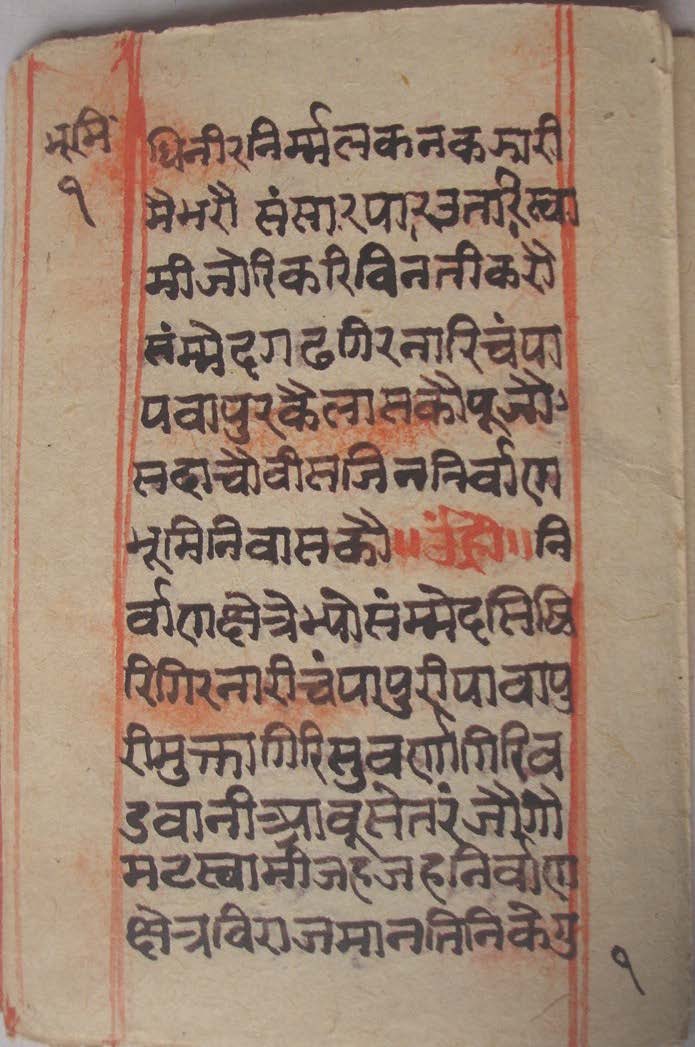 भूमि
१
धिनीरनिर्म्मलकनकझारी
मैभरौ संसारपारउतारिस्वा
मीजोरिकरिविनतीकरौ
संम्मेदगढगिरनारिचंपा
पवापुरकैलासकौपूजौ
सदाचौवीसजिननिर्वाण
भूमिनिवासकौ॥उंह्री॥नि
र्वाणक्षेत्रेभ्योसंम्मेदसिद्धि
रिगिरनारीचंपापुरीपावापु
रीमुक्तागिरिसुवर्णागिरिव
डवानीआवूसेतरंजौगो
मटस्वामीजहजहनिर्वाण
क्षेत्रविराजमानतिनिकेगु
१